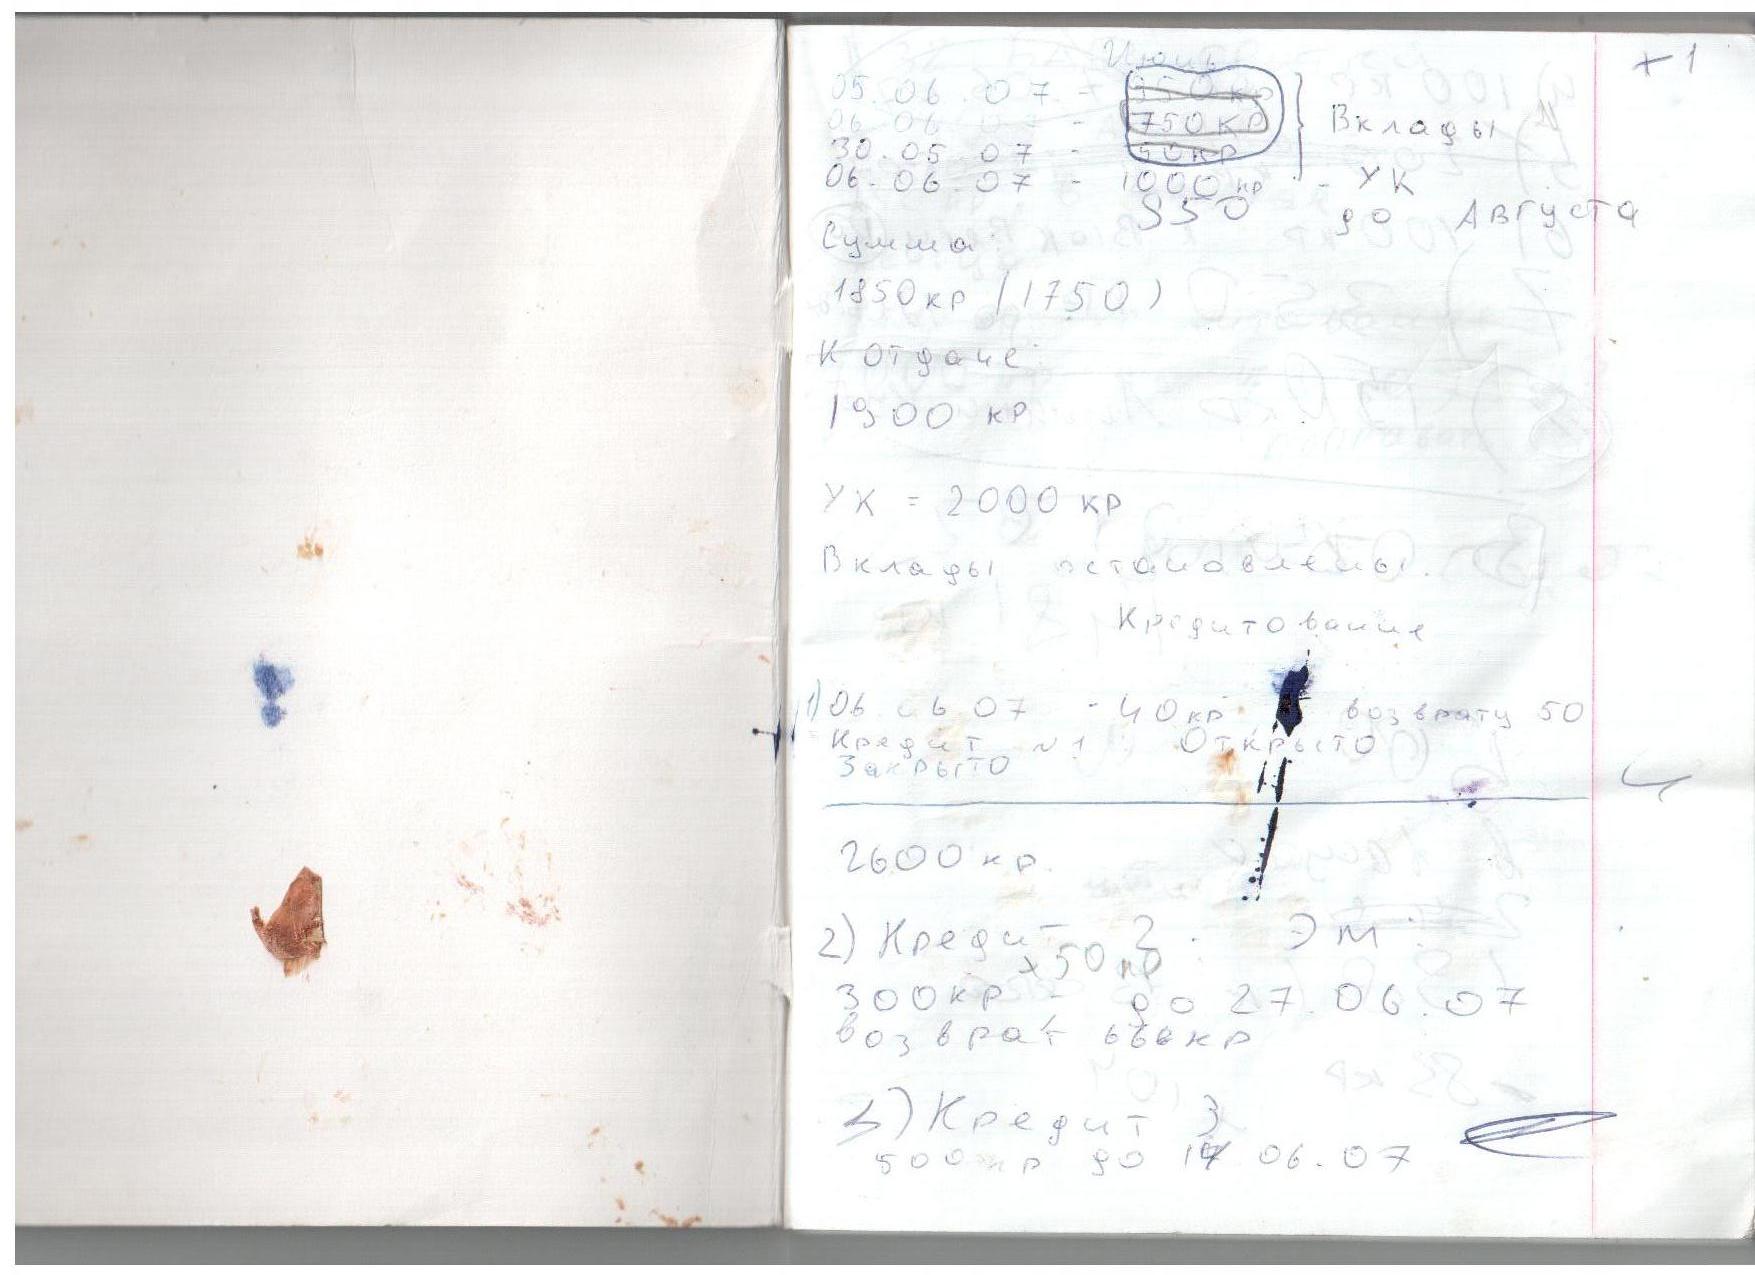 +1
Июнь
05.06.07 -
06.06.07 - 750кр } Вклады
30.05.07 - 40кр
06.06.07 - 1000кр - УК
950 до Августа
Сумма:
1850кр (1750)
К отдаче:
1900 кр
УК = 2000 кр
Вклады остановлены.
Кредитование
1) 06.06.07 - 40кр возврату 50
Кредит №1 Открыто
Закрыто
2600 кр.
2) Кредит 2. ЭМ.
+50 кр
300кр - до 27.06.07
возврат 666кр
3) Кредит 3
500кр до 06.07